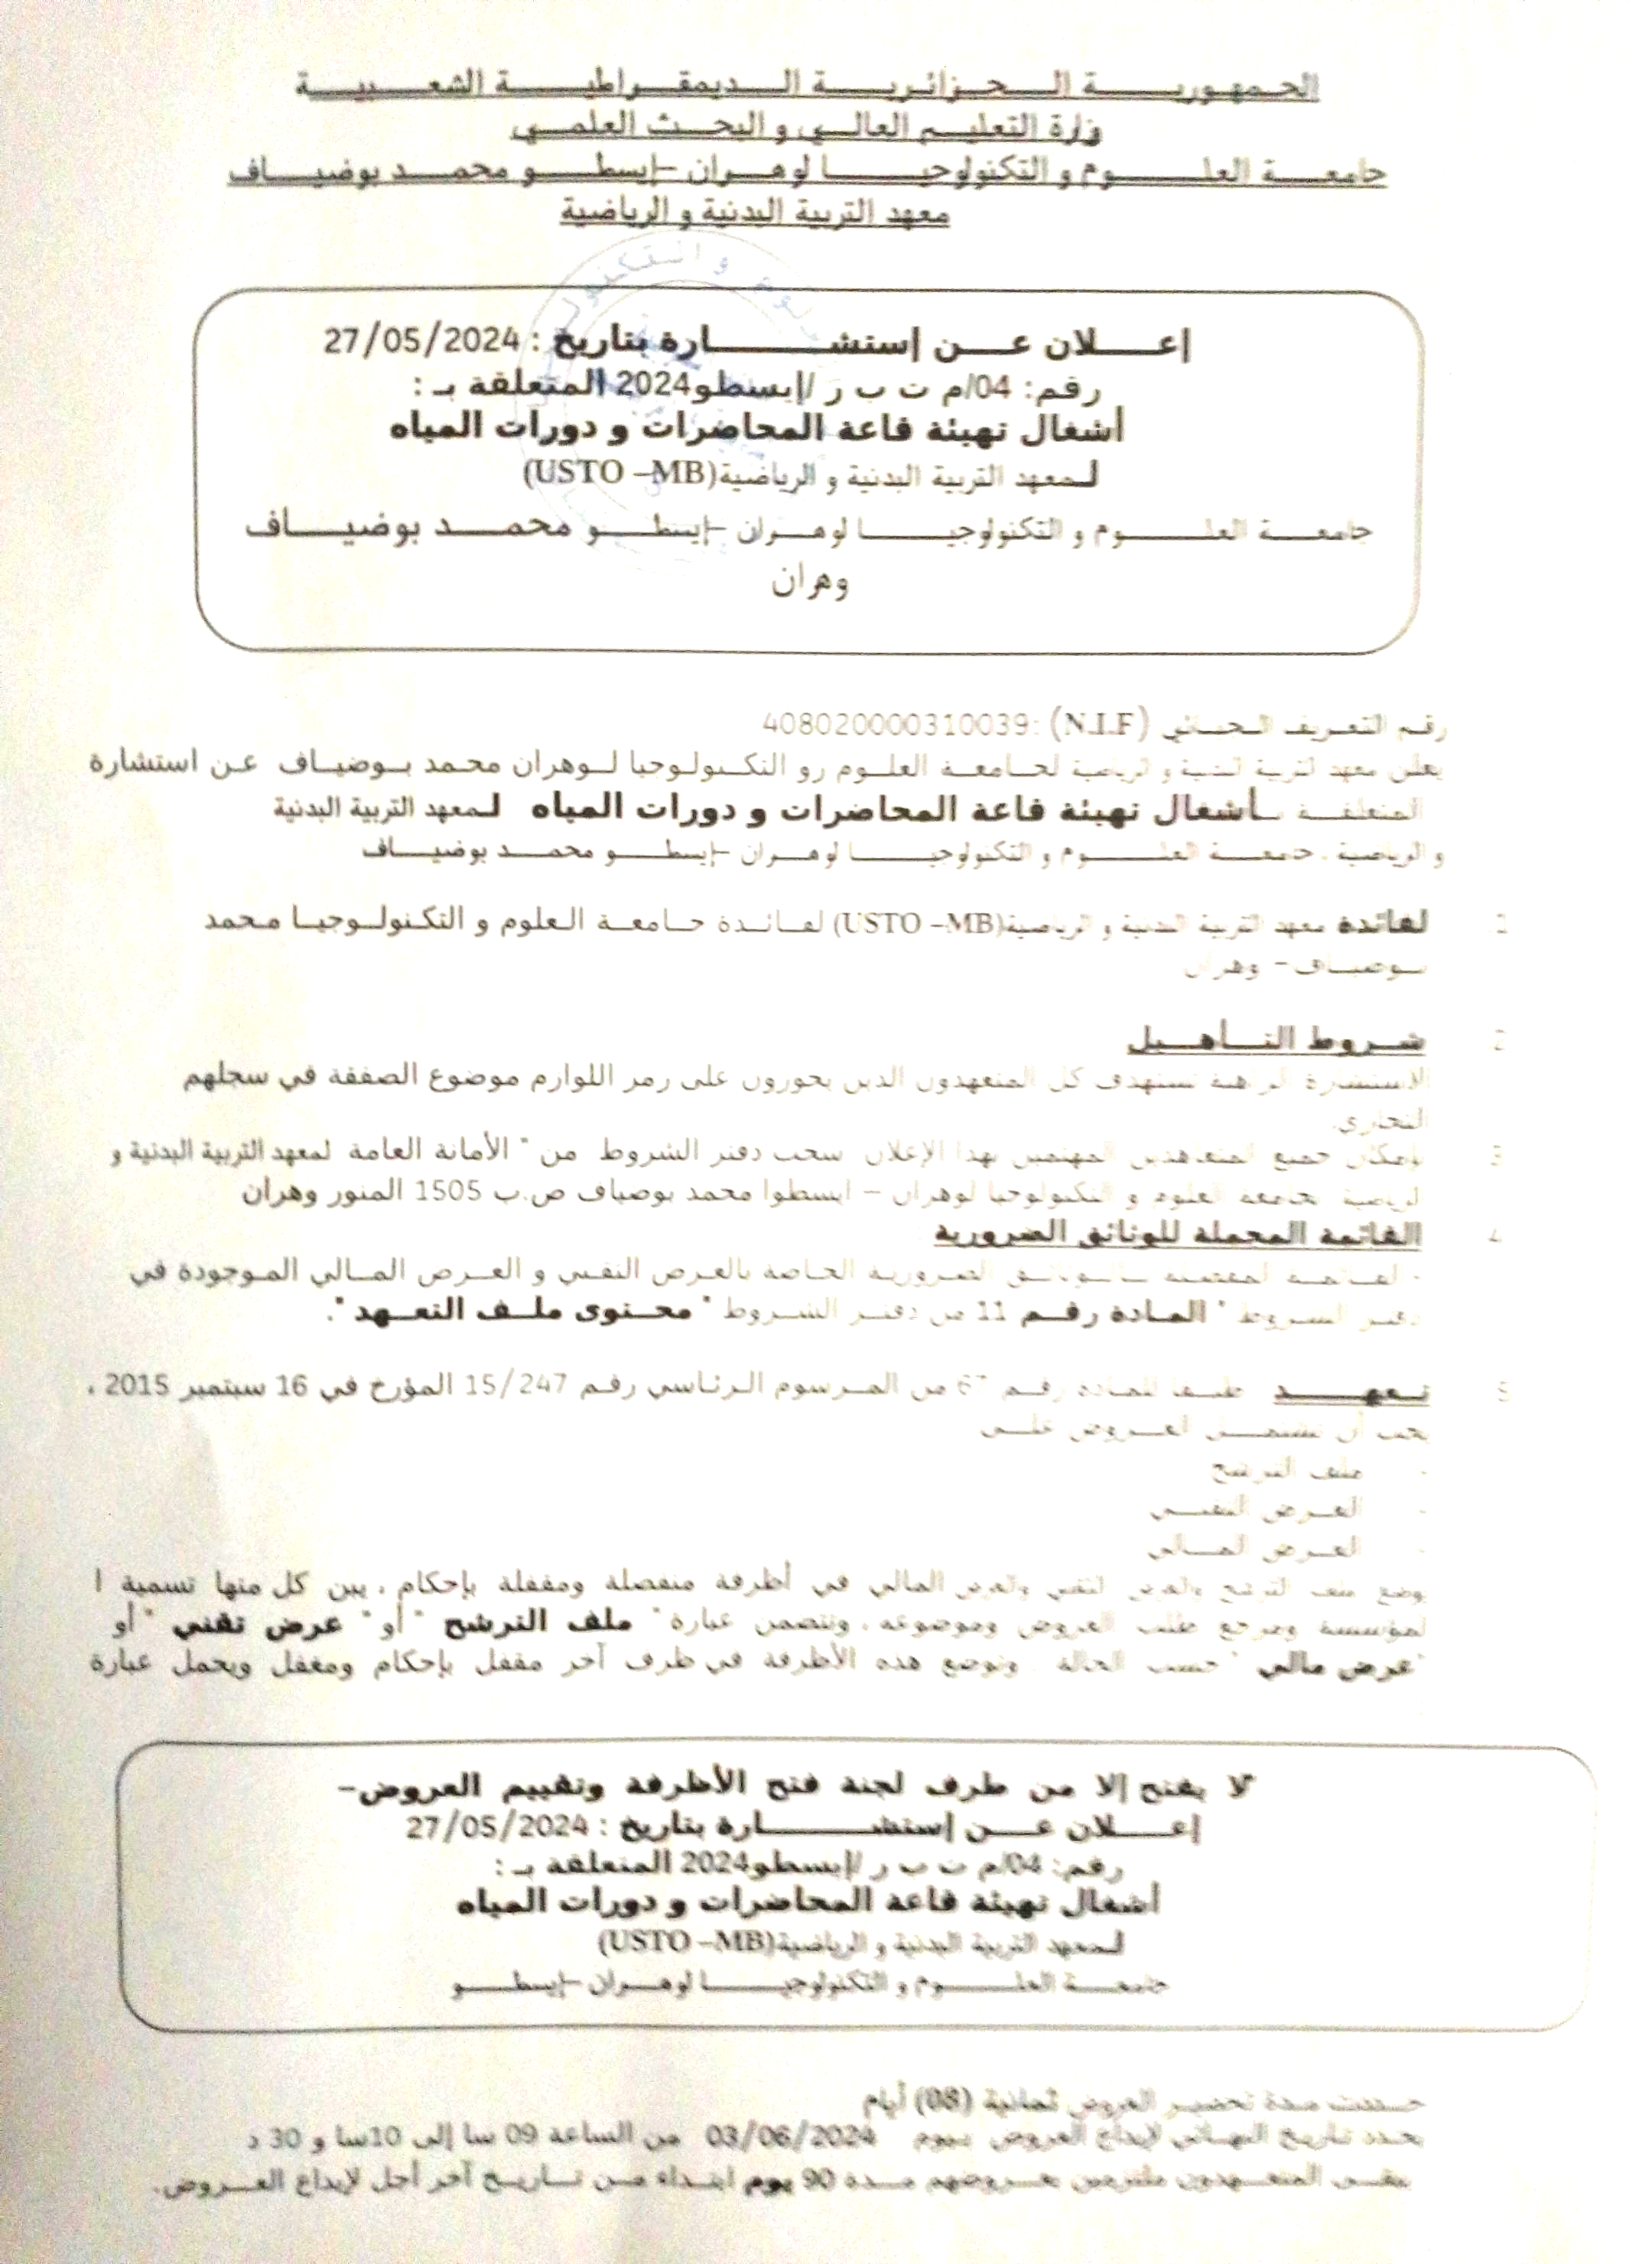 الجمهورية الجزائرية الديمقراطية الشعبية
وزارة التعليم العالي و البحث العلمي
جامعة العلوم و التكنولوجيا لوهران –إيسطو محمد بوضياف
معهد التربية البدنية و الرياضية
إعلان عن إستشارة بتاريخ : 27/05/2024
رقم: 04/م ت ب ر /إيسطو2024 المتعلقة بـ :
أشغال تهيئة قاعة المحاضرات و دورات المياه
لمعهد التربية البدنية و الرياضية(USTO –MB)
جامعة العلوم و التكنولوجيا لوهران –إيسطو محمد بوضياف
وهران
رقم التعريف الجبائي (N.I.F) :408020000310039
يعلن معهد التربية البدنية و الرياضية لجامعة العلوم رو التكنولوجيا لوهران محمد بوضياف عن استشارة
المتعلقة بـأشغال تهيئة قاعة المحاضرات و دورات المياه لمعهد التربية البدنية
و الرياضية . جامعة العلوم و التكنولوجيا لوهران –إيسطو محمد بوضياف
1 لفائدة معهد التربية البدنية و الرياضية(USTO –MB) لفائدة جامعة العلوم و التكنولوجيا محمد
بوضياف – وهران
2 شروط التأهيل
الاستشارة الراهنة تستهدف كل المتعهدون الذين يحوزون على رمز اللوازم موضوع الصفقة في سجلهم
التجاري.
3 بإمكان جميع المتعاهدين المهتمين بهذا الإعلان سحب دفتر الشروط من " الأمانة العامة لمعهد التربية البدنية و
الرياضية بجامعة العلوم و التكنولوجيا لوهران – ايسطوا محمد بوضياف ص.ب 1505 المنور وهران
4 القائمة المجملة للوثائق الضرورية
الضرورية الخاصة بالعرض التقني و العرض المالي الموجودة في
دفتر الشروط " المادة رقم 11 من دفتر الشروط " محتوى ملف التعهد ".
5 تعهد طبقا للمادة رقم 67 من المرسوم الرئاسي رقم 15/247 المؤرخ في 16 سبتمبر 2015 ،
يجب أن تشتمل العروض على
- ملف الترشح
- العرض التقني
- العرض المالي
يوضع ملف الترشح والعرض التقني والعرض المالي في أظرفة منفصلة ومقفلة بإحكام ، يبن كل منها تسمية ا
لمؤسسة ومرجع طلب العروض وموضوعه ، وتتضمن عبارة " ملف الترشح " أو " عرض تقني " أو
"عرض مالي " حسب الحالة وتوضع هذه الأظرفة في ظرف آخر مقفل بإحكام ومغفل ويحمل عبارة
"لا يفتح إلا من طرف لجنة فتح الأظرفة وتقييم العروض–
إعلان عن إستشارة بتاريخ : 27/05/2024
رقم: 04/م ت ب ر /إيسطو2024 المتعلقة بـ :
أشغال تهيئة قاعة المحاضرات و دورات المياه
لمعهد التربية البدنية و الرياضية(USTO –MB)
جامعة العلوم و التكنولوجيا لوهران –إيسطو
حددت مدة تحضير العروض ثمانية (08) أيام
يحدد تاريخ النهائي لإيداع العروض بيوم 03/06/2024 من الساعة 09 سا إلى 10سا و 30 د
يبقى المتعهدون ملتزمين بعروضهم مدة 90 يوم ابتداء من تاريخ آخر أجل لإيداع العروض.